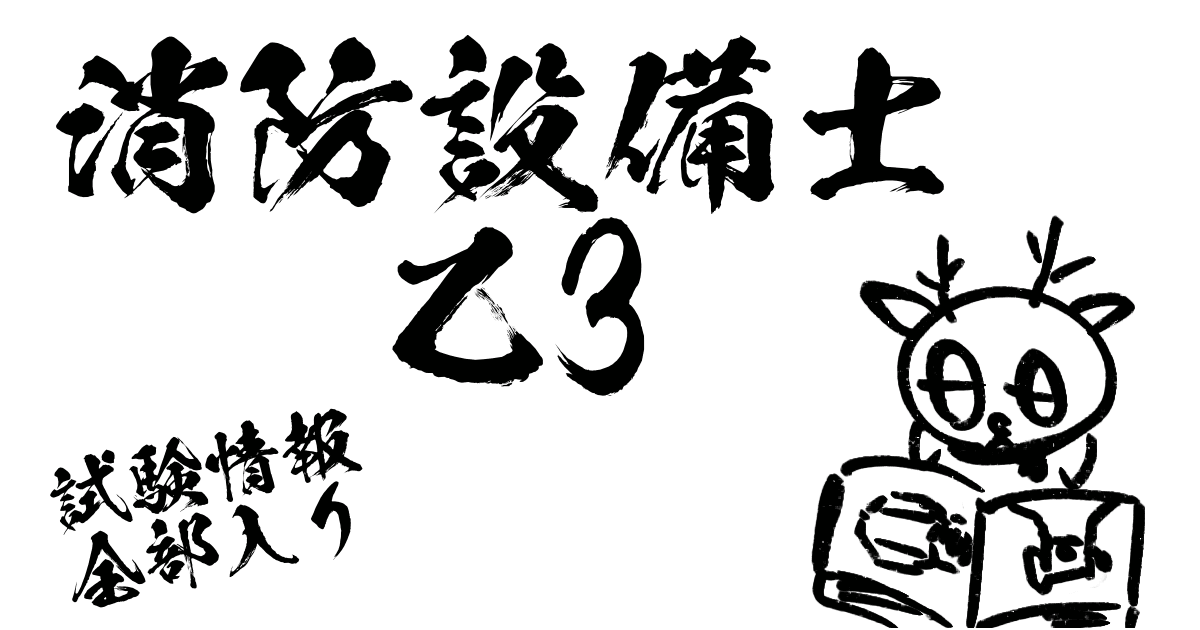 消防設備士
乙3
試験情報
全部入り